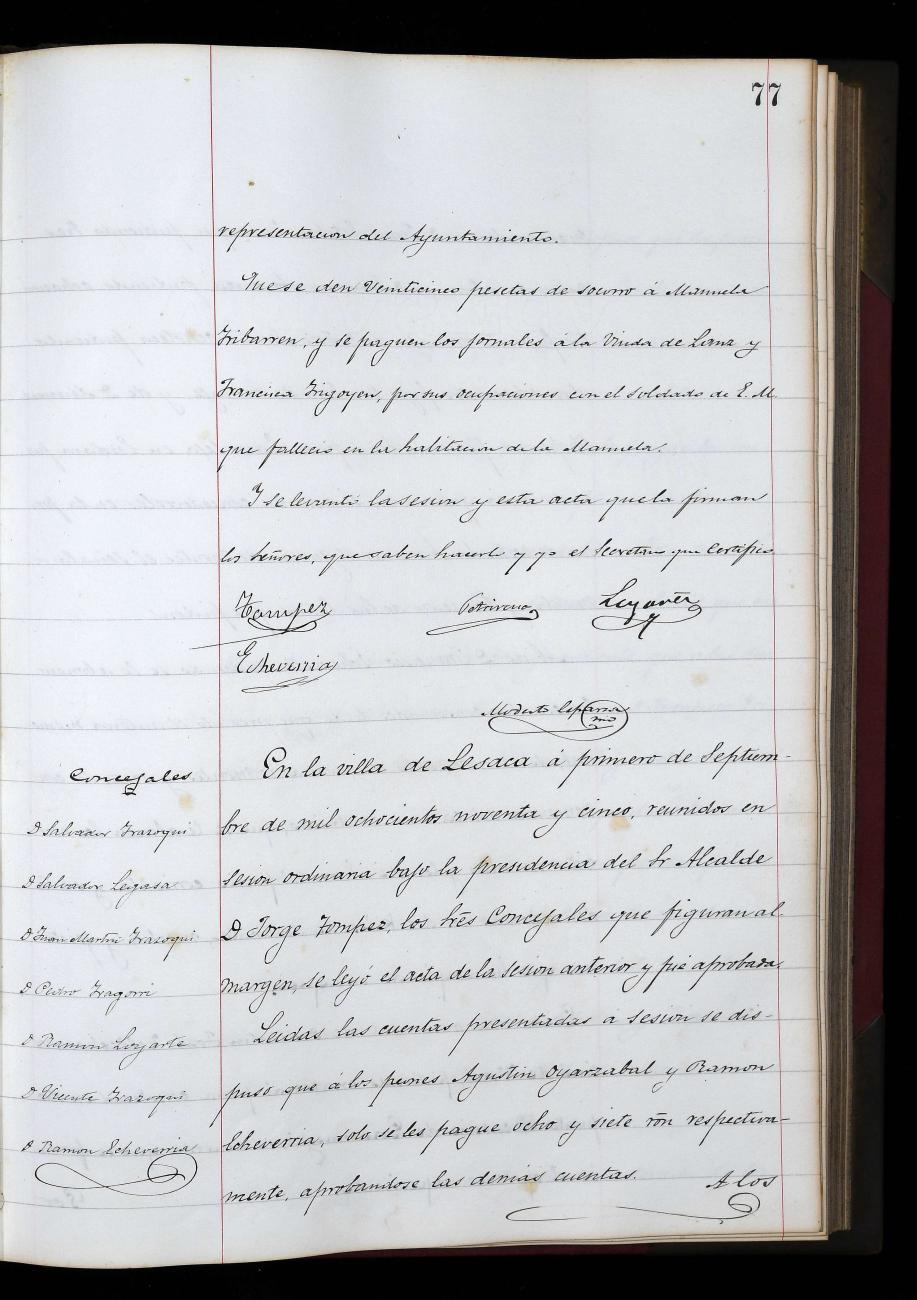 77
representacion del Ayuntamiento.
Que se den veinticinco pesetas de socorro á Manuela
Iribarren, y se paguen los jornales á la Viuda de Lanz y
Francisca Irigoyen, por sus ocupaciones con el soldado de E. M.
que fallecio en la habitacion de la Manuela.
Y se levantó la sesion y esta acta que la firman
los Señores, que saben hacerlo y yo el Secretario que Certifico
Tompez
Echeverria
Modesto
Concejales
D Salvador Irazoqui
D Salvador Legasa
D Juan Martin Irazoqui
D Pedro Iragorri
D Ramon Loyarte
D Vicente Irazoqui
D Ramon Echeverria
En la villa de Lesaca á primero de Septiem-
bre de mil ochocientos noventa y cinco, reunidos en
sesion ordinaria bajo la presidencia del Sr Alcalde
D Jorge Tompez, los Srēs Concejales que figuran al
margen, se leyó el acta de la sesion anterior y fué aprobada.
Leidas las cuentas presentadas a sesion se dis-
puso que á los peones Agustin Oyarzabal y Ramon
Echeverria, solo se les pague ocho y siete rōn respectiva-
mente, aprobandose las demás cuentas. A los